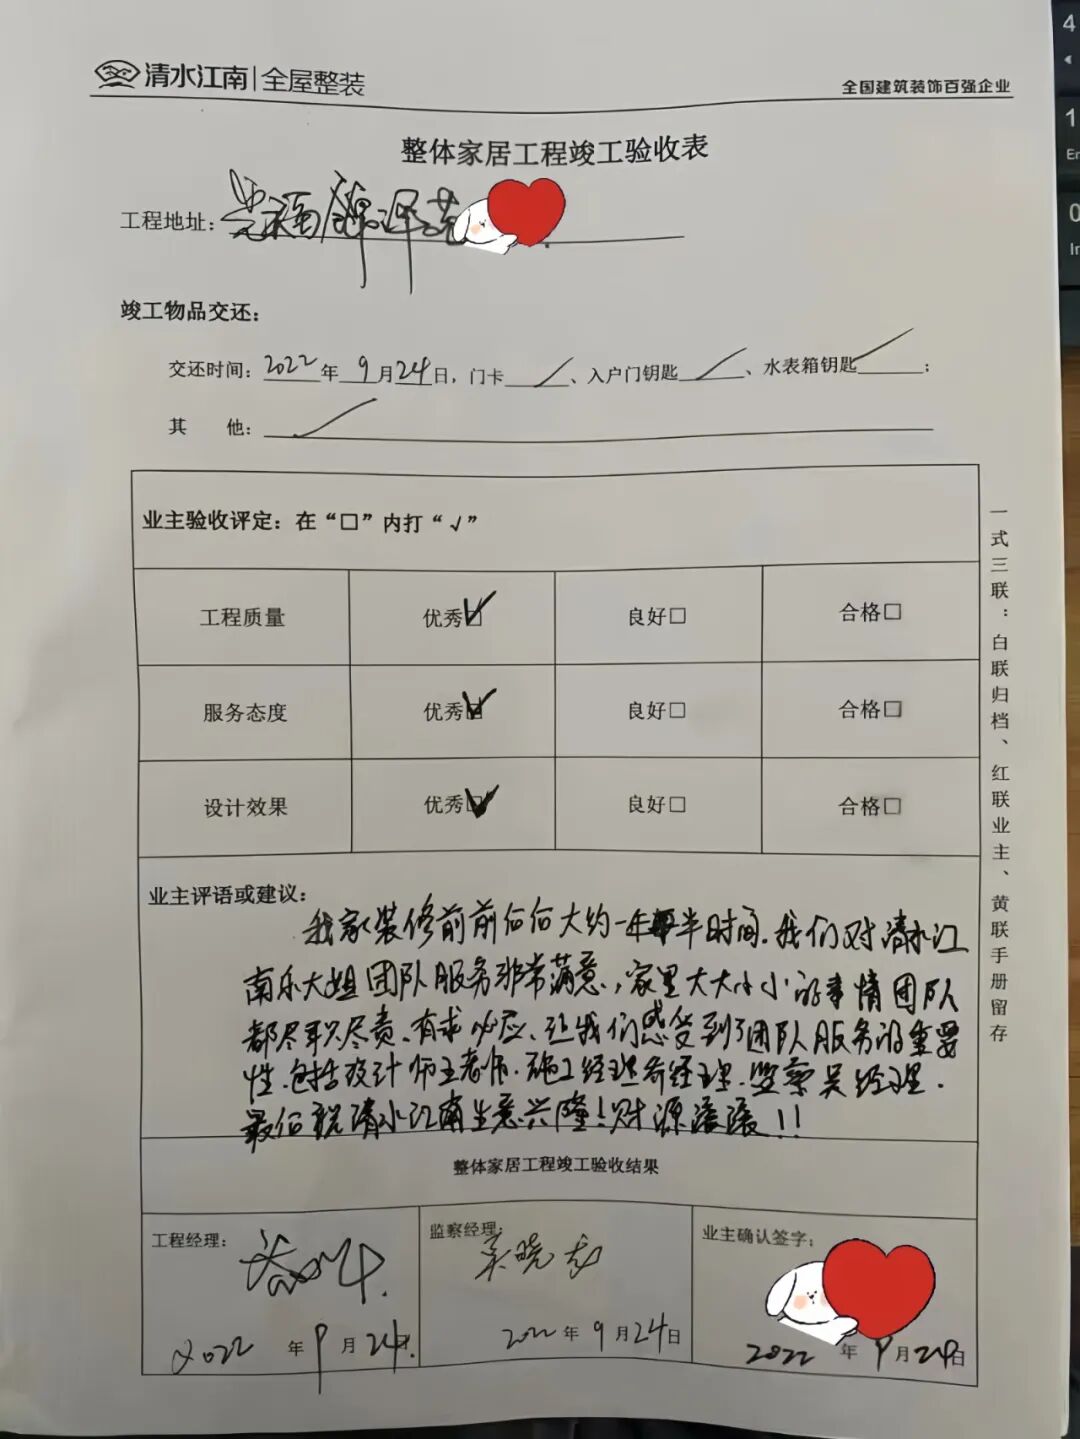 清水江南|全屋整装
全国建筑装饰百强企业
整体家居工程竣工验收表
工程地址：
竣工物品交还：
交还时间：2022年 9月24日，门卡 、入户门钥匙 、水表箱钥匙 ；
其 他：
业主验收评定：在“□”内打“√”
工程质量 优秀☑ 良好□ 合格□
服务态度 优秀☑ 良好□ 合格□
设计效果 优秀☑ 良好□ 合格□
业主评语或建议：
我家装修前前后后大约一年半时间.我们对清水江
南乐大姐团队服务非常满意，家里大大小小的事情团队
都尽职尽责、有求必应、让我们感受到了团队服务的重要
性.包括设计师王老师.施工经理乔经理.监察吴经理.
最后祝清水江南生意兴隆！财源滚滚！！
整体家居工程竣工验收结果
工程经理：
监察经理：
吴晓龙
业主确认签字：
2022 年 9 月 24日
2022 年 9 月 24日
2022 年 9 月 24日
一式三联：白联归档、红联业主、黄联手册留存
4
1
0